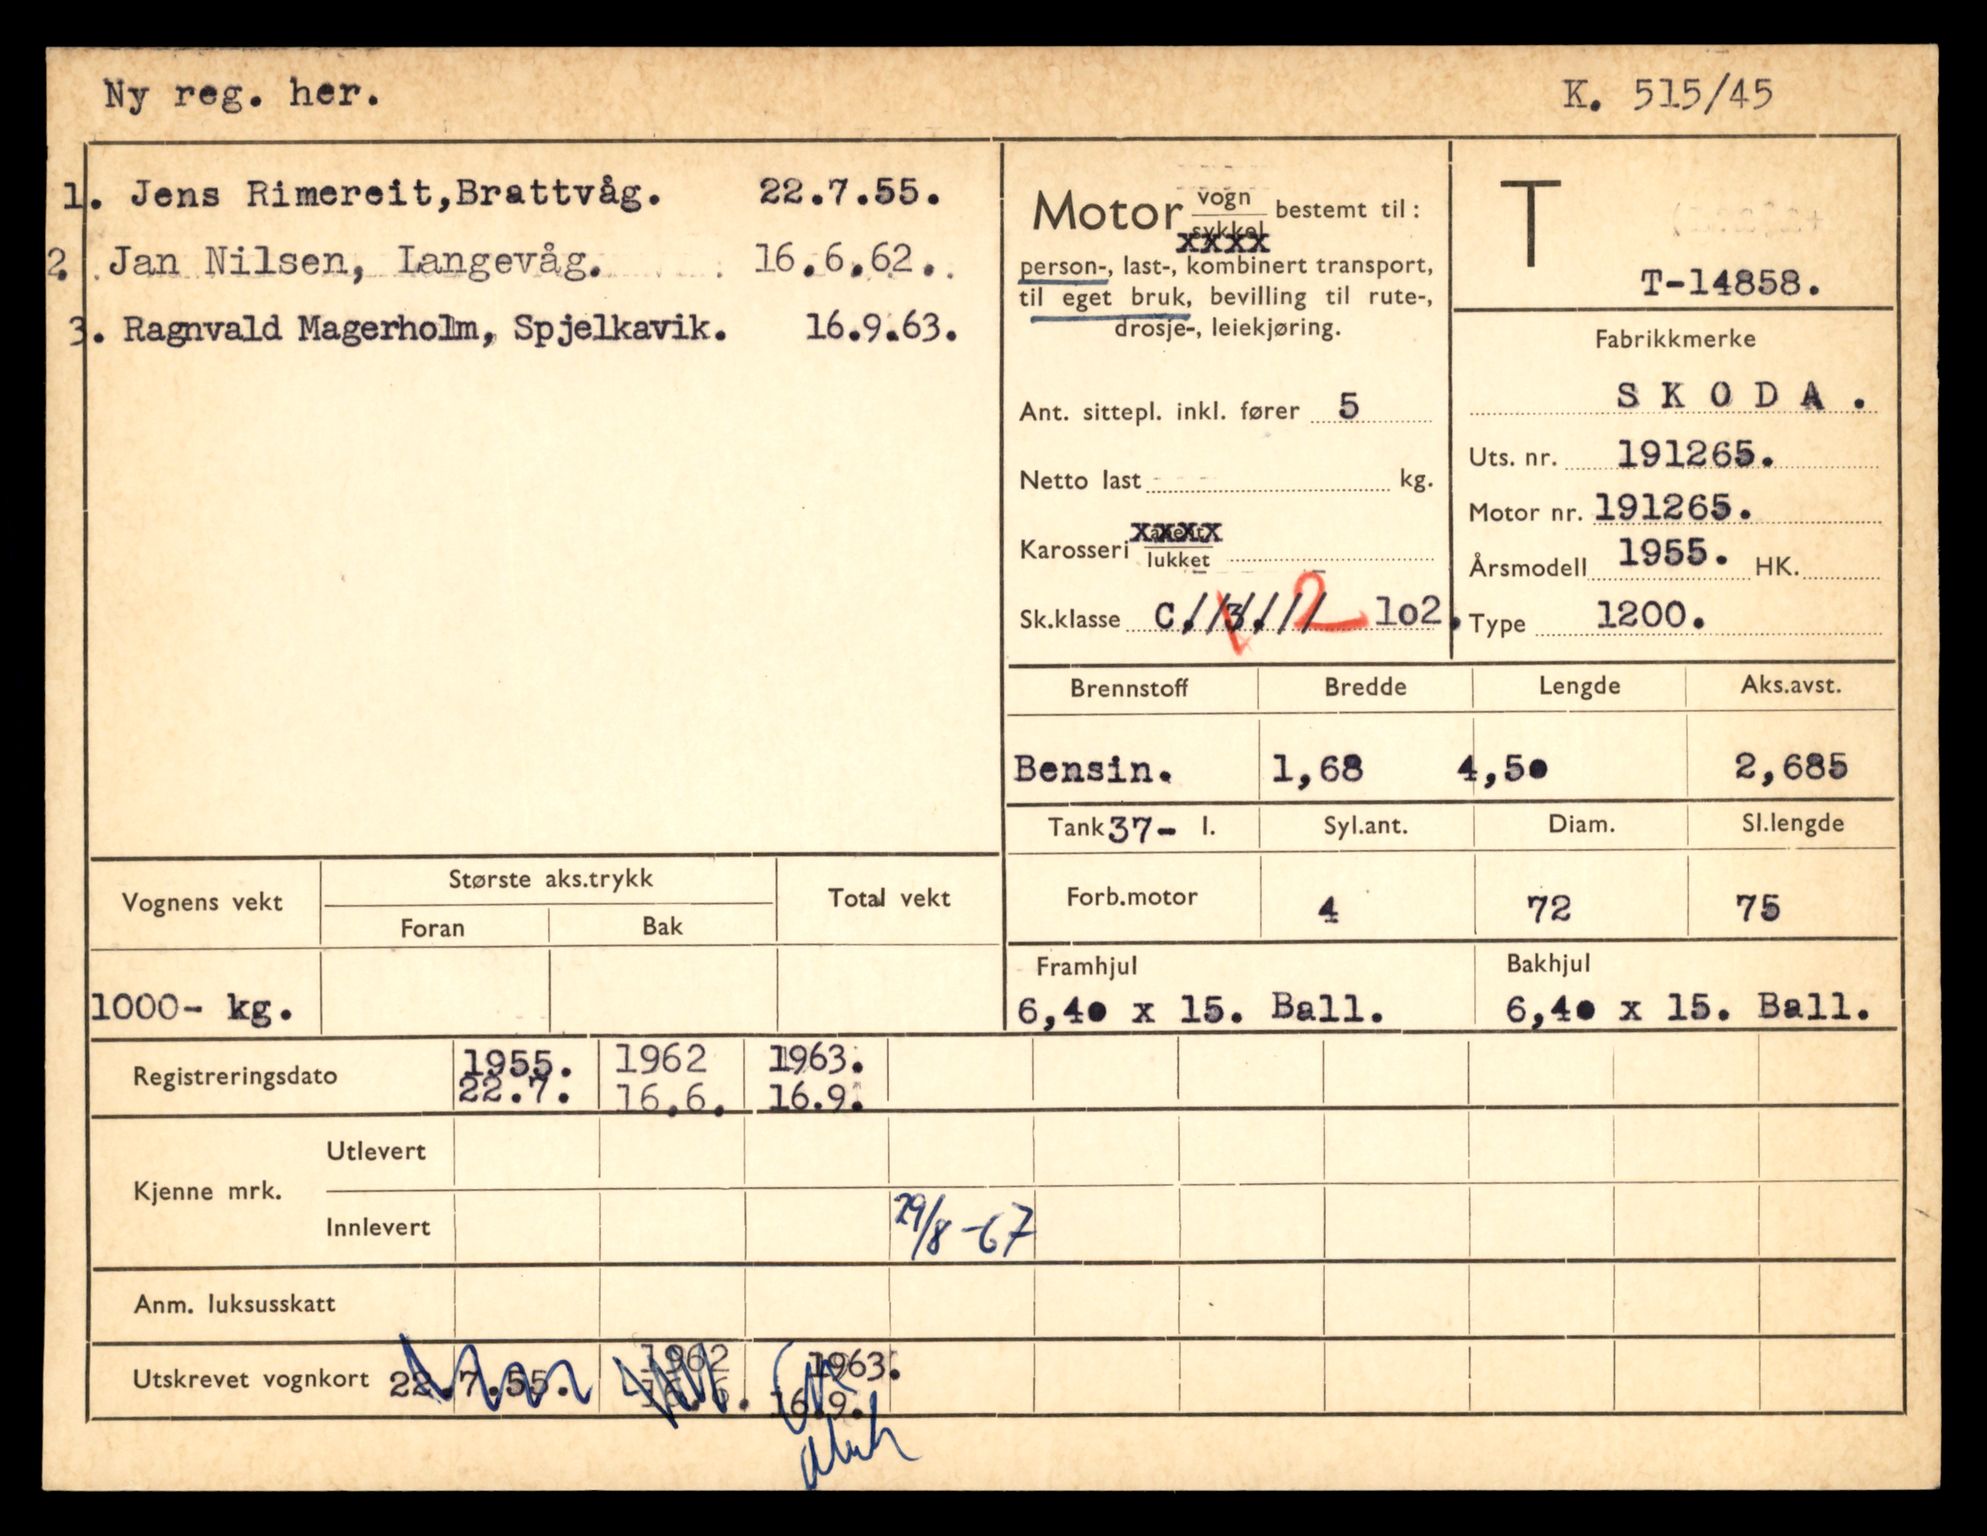 Ny reg. her.
K. 515/45
1. Jens Rimereit,Brattvåg. 22.7.55.
2. Jan Nilsen, Langevåg. 16.6.62.
3. Ragnvald Magerholm, Spjelkavik. 16.9.63.
Motor vogn sykkel bestemt til:
xxxx
person-, last-, kombinert transport,
til eget bruk, bevilling til rute-,
drosje-, leiekjøring.
Ant. sittepl. inkl. fører 5
Netto last kg.
Karosseri xxxx lukket
Sk.klasse C. 3. 2 lo2.
T
T-14858.
Fabrikkmerke
SKODA.
Uts. nr. 191265.
Motor nr. 191265.
Årsmodell 1955. HK.
Type 1200.
Brennstoff Bredde Lengde Aks.avst.
Bensin. 1,68 4,50 2,685
Tank 37- l. Syl.ant. Diam. Sl.lengde
Forb.motor 4 72 75
Framhjul Bakhjul
6,40 x 15. Ball. 6,40 x 15. Ball.
Vognens vekt Største aks.trykk Total vekt
Foran Bak
1000- kg.
Registreringsdato 1955. 1962 1963.
22.7. 16.6. 16.9.
Kjenne mrk. Utlevert
Innlevert 29/8 -67
Anm. luksusskatt
Utskrevet vognkort 22.7.55. 1962 1963.
16.6. 16.9.